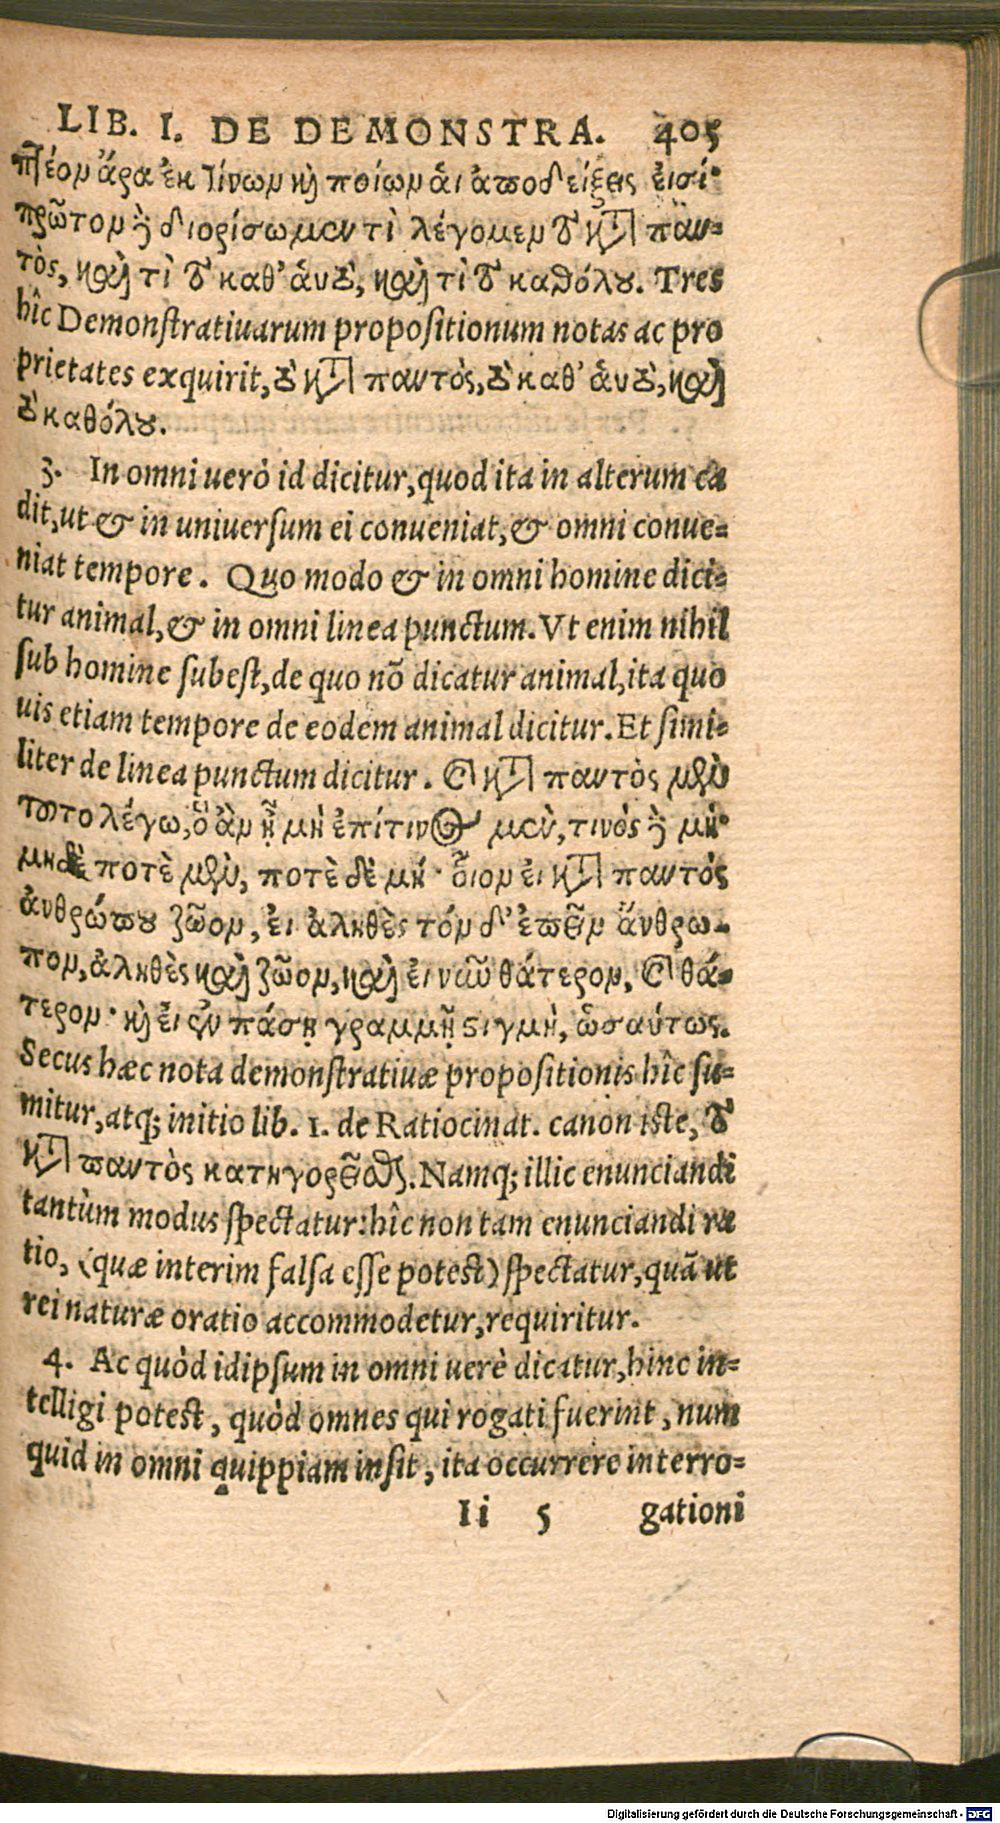 LIB. I. DE DEMONSTRA. 405
πτέον ἄρα ἐκ τίνων καὶ ποίων αἱ ἀποδείξεις εἰσί·
πρῶτον δὲ διορίσωμεν τὶ λέγομεν τὸ κατὰ παν-
τὸς, καὶ τὶ τὸ καθ' αὑτὸ, καὶ τὶ τὸ καθόλου. Tres
hîc Demonstratiuarum propositionum notas ac pro
prietates exquirit, τὸ κατὰ παντὸς, τὸ καθ' αὑτὸ, καὶ
τὸ καθόλου.
3. In omni uerò id dicitur, quod ita in alterum ca
dit, ut & in uniuersum ei conueniat, & omni conue-
niat tempore. Quo modo & in omni homine dici-
tur animal, & in omni linea punctum. Vt enim nihil
sub homine subest, de quo nõ dicatur animal, ita quo
uis etiam tempore de eodem animal dicitur. Et simi-
liter de linea punctum dicitur. τὸ κατὰ παντὸς μὲν
τοῦτο λέγω, ὃ ἂν ᾖ μὴ ἐπί τινος μὲν, τινὸς δὲ μή·
μηδὲ ποτὲ μὲν, ποτὲ δὲ μή· οἷον εἰ κατὰ παντός
ἀνθρώπου ζῶον, εἰ ἀληθὲς τόν δ' εἰπεῖν ἄνθρω-
πον, ἀληθὲς καὶ ζῶον, καὶ εἰ νῦν θάτερον, καὶ θά-
τερον· καὶ εἰ ἐν πάσῃ γραμμῇ στιγμὴ, ὡσαύτως.
Secus hæc nota demonstratiuæ propositionis hîc su-
mitur, atq; initio lib. 1. de Ratiocinat. canon iste, τὸ
κατὰ παντὸς κατηγορεῖσθαι. Namq; illic enunciandi
tantùm modus spectatur: hîc non tam enunciandi ra
tio, (quæ interim falsa esse potest) spectatur, quã ut
rei naturæ oratio accommodetur, requiritur.
4. Ac quòd idipsum in omni uerè dicatur, hinc in-
telligi potest, quòd omnes qui rogati fuerint, num
quid in omni quippiam insit, ita occurrere interro-
Ii 5 gationi
Digitalisierung gefördert durch die Deutsche Forschungsgemeinschaft - DFG